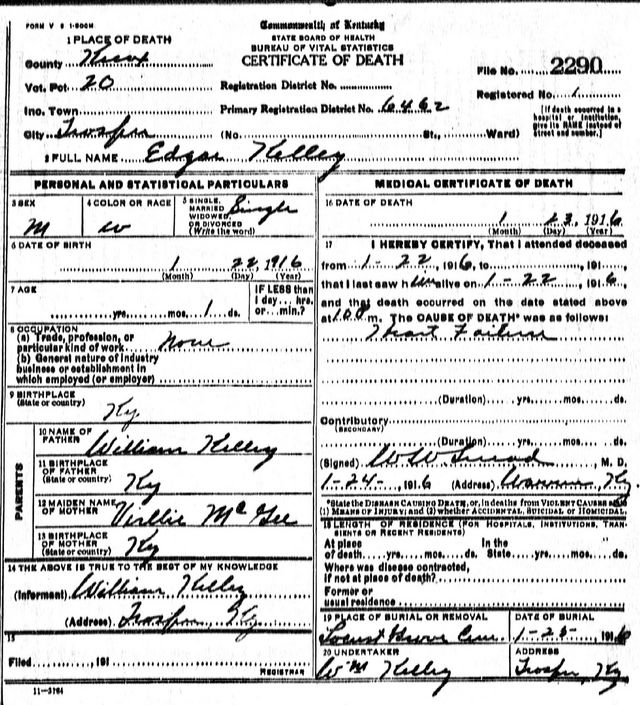 FORM V S 1-500M
Commonwealth of Kentucky
STATE BOARD OF HEALTH
BUREAU OF VITAL STATISTICS
CERTIFICATE OF DEATH
1 PLACE OF DEATH
County Knox
File No. 2290
Vot. Pct 20
Registration District No.
Registered No. 1
Inc. Town
Primary Registration District No. 6462
[If death occurred in a hospital or institution, give its NAME instead of street and number.]
City Trosper (No. St., Ward)
2 FULL NAME Edgar Kelley
PERSONAL AND STATISTICAL PARTICULARS
3 SEX M
4 COLOR OR RACE W
5 SINGLE, MARRIED WIDOWED OR DIVORCED (Write the word) Single
6 DATE OF BIRTH
1 22, 1916
(Month) (Day) (Year)
7 AGE
yrs. mos. 1 ds.
IF LESS than 1 day... hrs. or... min.?
8 OCCUPATION
(a) Trade, profession, or particular kind of work None
(b) General nature of industry business or establishment in which employed (or employer)
9 BIRTHPLACE
(State or country) Ky
PARENTS
10 NAME OF FATHER William Kelley
11 BIRTHPLACE OF FATHER
(State or country) Ky
12 MAIDEN NAME OF MOTHER McGee
13 BIRTHPLACE OF MOTHER
(State or country) Ky
14 THE ABOVE IS TRUE TO THE BEST OF MY KNOWLEDGE
(Informant) William Kelley
(Address) Trosper Ky
15
Filed , 191
REGISTRAR
11-3184
MEDICAL CERTIFICATE OF DEATH
16 DATE OF DEATH
1 23, 1916
(Month) (Day) (Year)
17 I HEREBY CERTIFY, That I attended deceased
from 1-22, 1916, to , 191 ,
that I last saw him alive on 1-22, 1916,
and that death occurred on the date stated above
at m. The CAUSE OF DEATH* was as follows:
Heart Failure
(Duration) yrs. mos. ds.
Contributory
(SECONDARY)
(Duration) yrs. mos. ds.
(Signed) W W , M. D.
1-24-, 1916 (Address) Warren, Ky.
*State the DISEASE CAUSING DEATH, or, in deaths from VIOLENT CAUSES state
(1) MEANS OF INJURY; and (2) whether ACCIDENTAL, SUICIDAL or HOMICIDAL.
18 LENGTH OF RESIDENCE (FOR HOSPITALS, INSTITUTIONS, TRANSIENTS OR RECENT RESIDENTS)
At place of death yrs. mos. ds. In the State yrs. mos. ds.
Where was disease contracted,
if not at place of death?
Former or
usual residence
19 PLACE OF BURIAL OR REMOVAL
Locust Grove Cem.
DATE OF BURIAL
1-25-, 1916
20 UNDERTAKER
Wm Kelley
ADDRESS
Trosper, Ky